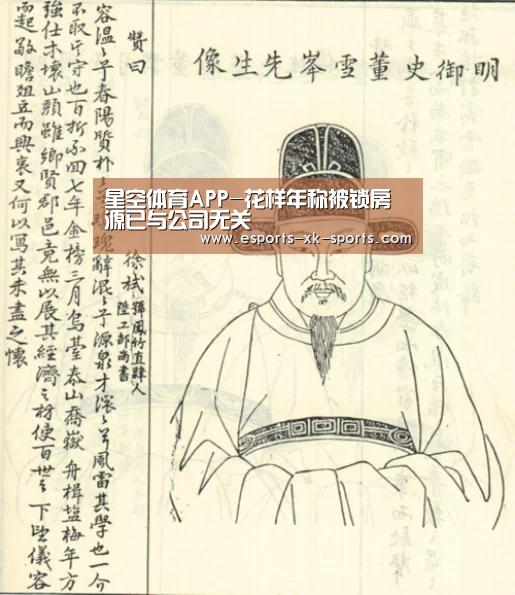 明御史董雪峯先生像
贊曰
容溫〻兮春陽質朴〻瑰辭混〻兮源泉才渢〻兮風雷其學也一介
不取其守也百折不回七年金榜三月烏臺泰山喬嶽舟楫鹽梅年方
強仕木壞山頹雖鄉賢郡邑竟無以展其經濟之材使百世之下望儀容
而起敬瞻俎豆而興哀又何以寫其未盡之懷
徐栻
號鳳竹直隸人
陞工部尚書
星空体育APP-花样年称被锁房
源已与公司无关
www.esports-xk-sports.com